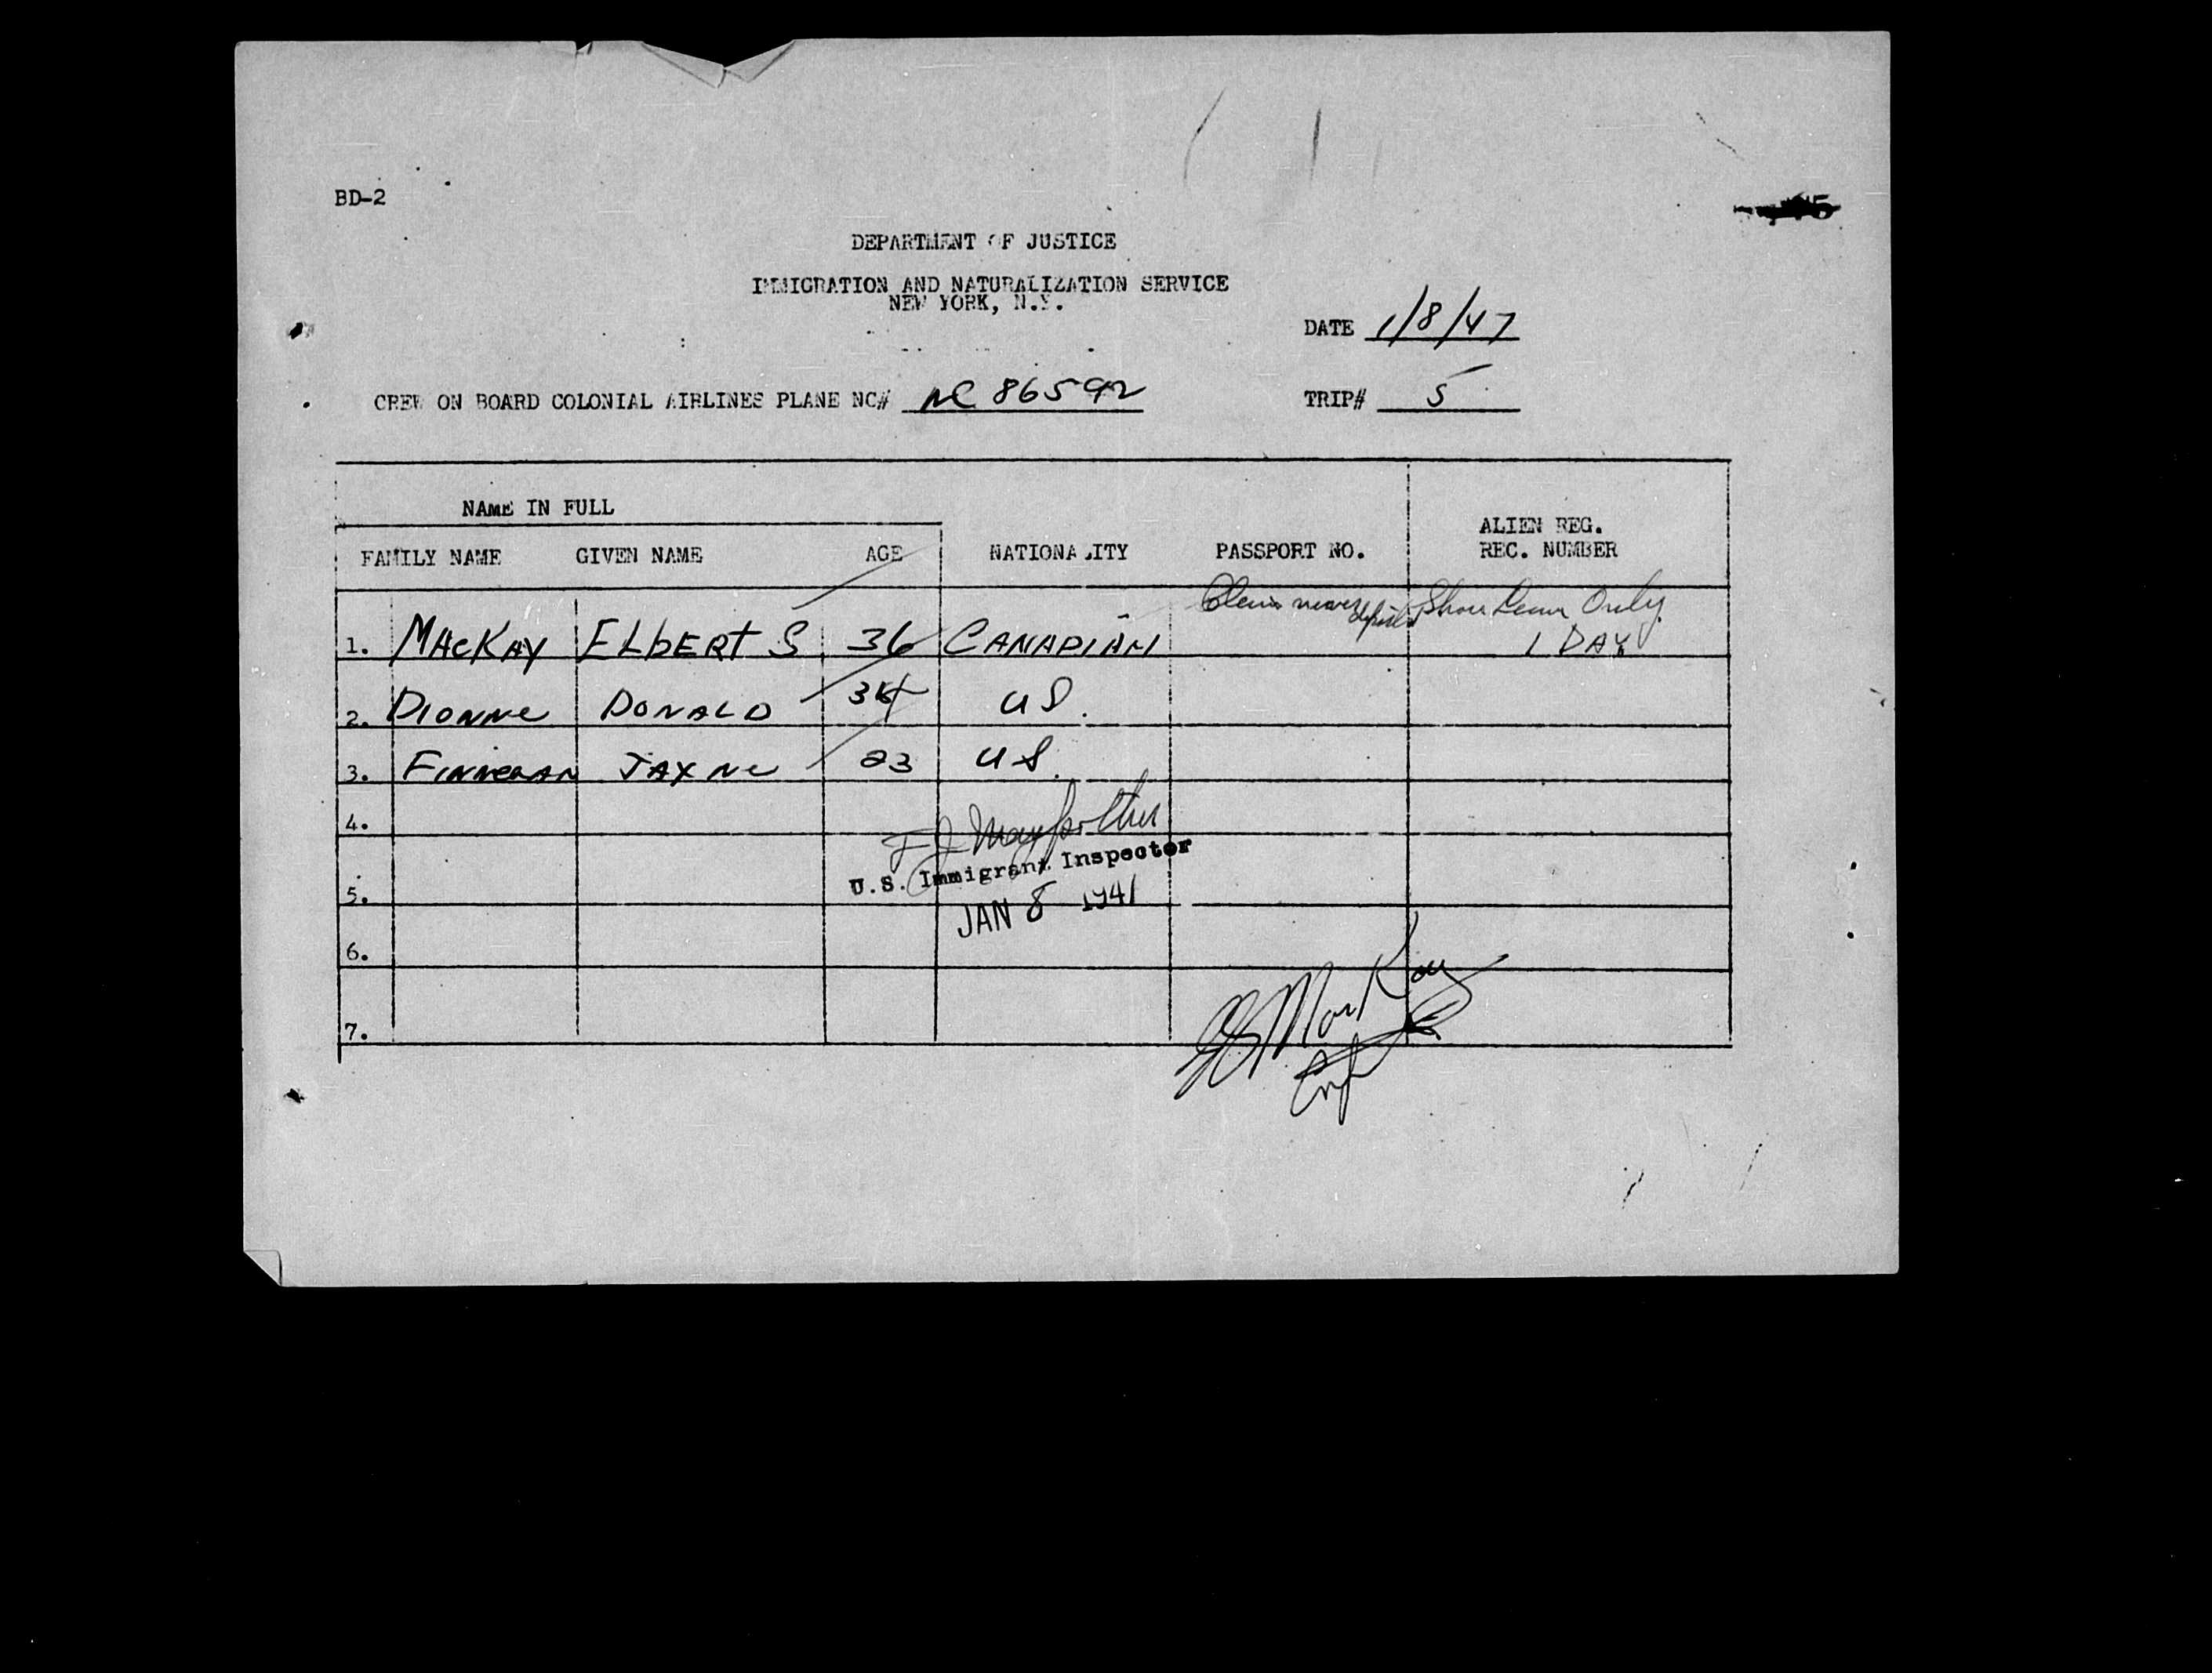 BD-2
DEPARTMENT OF JUSTICE
IMMIGRATION AND NATURALIZATION SERVICE
NEW YORK, N.Y.
DATE 1/8/47
CREW ON BOARD COLONIAL AIRLINES PLANE NC# NC 86592
TRIP# 5
NAME IN FULL
FAMILY NAME GIVEN NAME AGE NATIONALITY PASSPORT NO. ALIEN REG. REC. NUMBER
Claims never Shore Leave Only
1. MacKAY ELbERT S 36 CANADIAN 1 DAY
2. DIONNe DONALD 34 US.
3. FINNeGAN JAYNe 23 US.
4.
U.S. Immigrant Inspector
5.
JAN 8 1947
6.
ES MacKay
7.
Capt